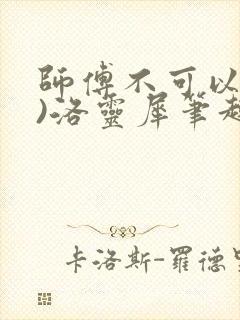 師傅不可以
)洛靈犀筆趣
卡洛斯-羅德里